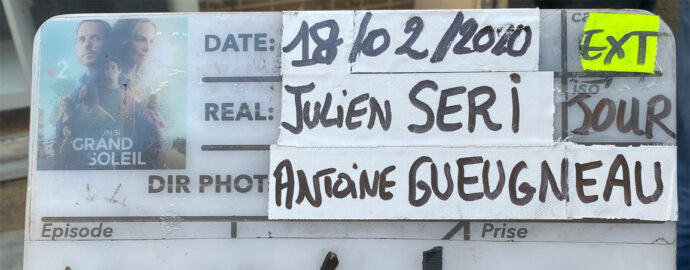 DATE: 18/02/2020 EXT
REAL: JULIEN SERI JOUR
DIR PHOT ANTOINE GUEUGNEAU
iso
2
UN SI
GRAND
SOLEIL
Episode Prise